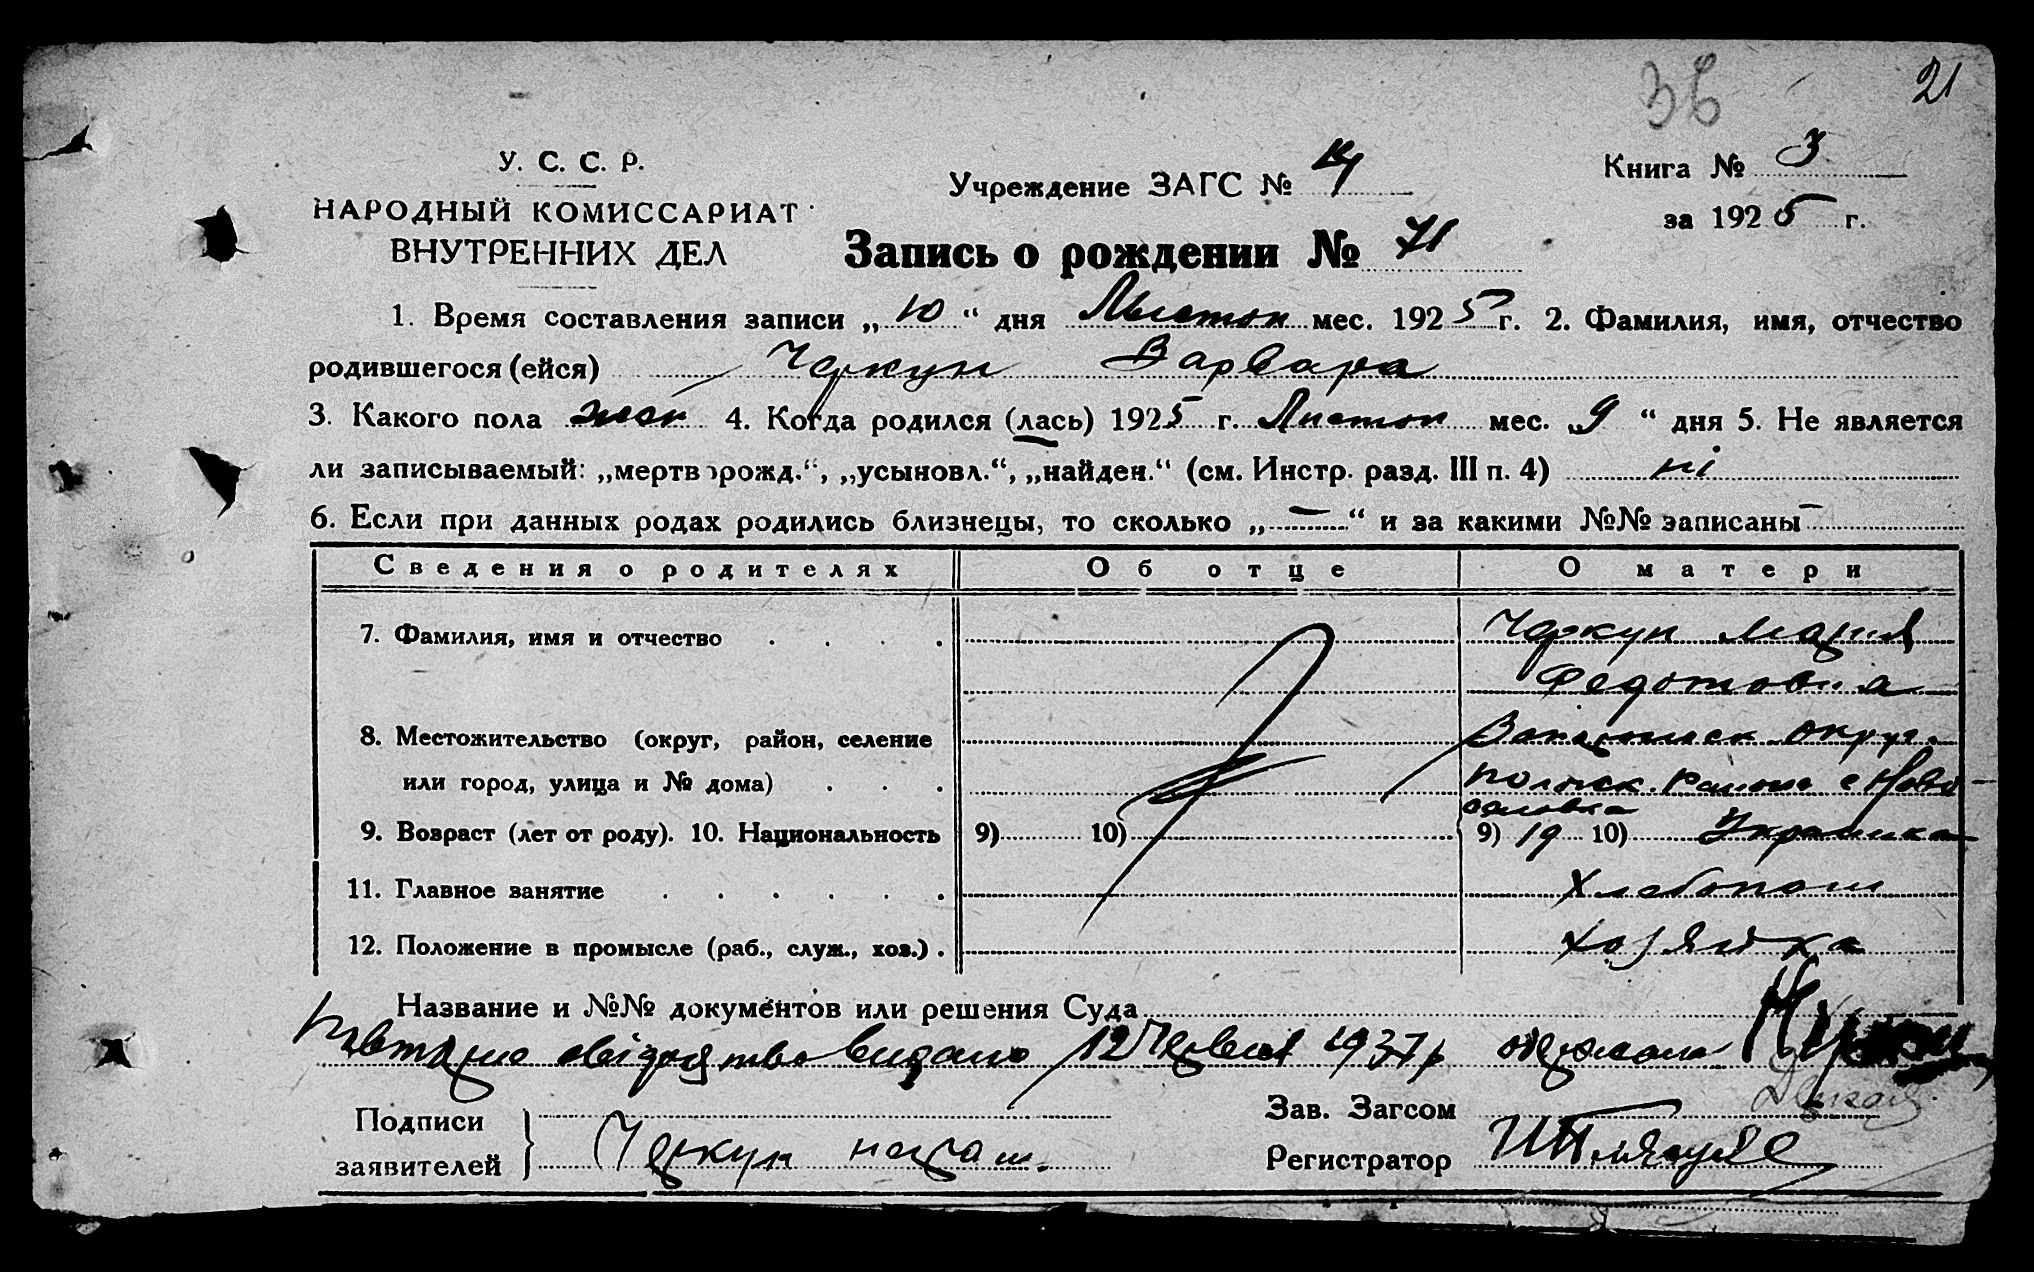 36 21
У. С. С. Р.
НАРОДНЫЙ КОМИССАРИАТ
ВНУТРЕННИХ ДЕЛ
Учреждение ЗАГС №
Книга № 3
за 1925 г.
Запись о рождении № 71
1. Время составления записи „10“ дня мес. 1925 г. 2. Фамилия, имя, отчество
родившегося (ейся) Черкун Варвара
3. Какого пола жон 4. Когда родился (лась) 1925 г. Листоп мес. „9“ дня 5. Не является
ли записываемый: „мертворожд.“, „усыновл.“, „найден.“ (см. Инстр. разд. III п. 4) ні
6. Если при данных родах родились близнецы, то сколько „—“ и за какими №№ записаны —
Сведения о родителях Об отце О матери
7. Фамилия, имя и отчество Черкун Мария
Федотовна
8. Местожительство (округ, район, селение округ.
или город, улица и № дома) района с Ново
селовка
9. Возраст (лет от роду). 10. Национальность 9) 10) 9) 19 10) Украинка
11. Главное занятие Хлебопаш
12. Положение в промысле (раб., служ., хоз.) хозяйка
Название и №№ документов или решения Суда
свідоцтво видано 12 Червня 1937 р одержала
Подписи
заявителей Черкун неграм.
Зав. Загсом
Регистратор